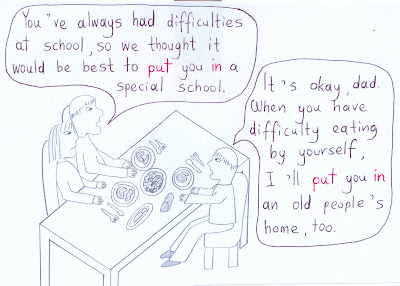 You've always had difficulties
at school, so we thought it
would be best to put you in a
special school.
It's okay, dad.
When you have
difficulty eating
by yourself,
I'll put you in
an old people's
home, too.